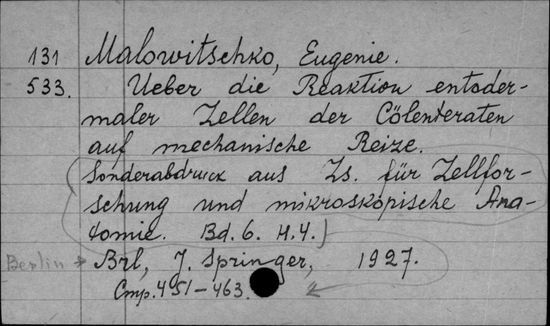 131 Malowitschko, Eugenie.
533. Ueber die Reaktion entoder-
maler Zellen der Cölenteraten
auf mechanische Reize.
(Sonderabdruck aus Zs. für Zellfor-
schung und mikroskopische Ana-
tomie. Bd. 6. H. 4.)
Berlin Brl, J. Springer, 1927.
Cmp. 451-463.